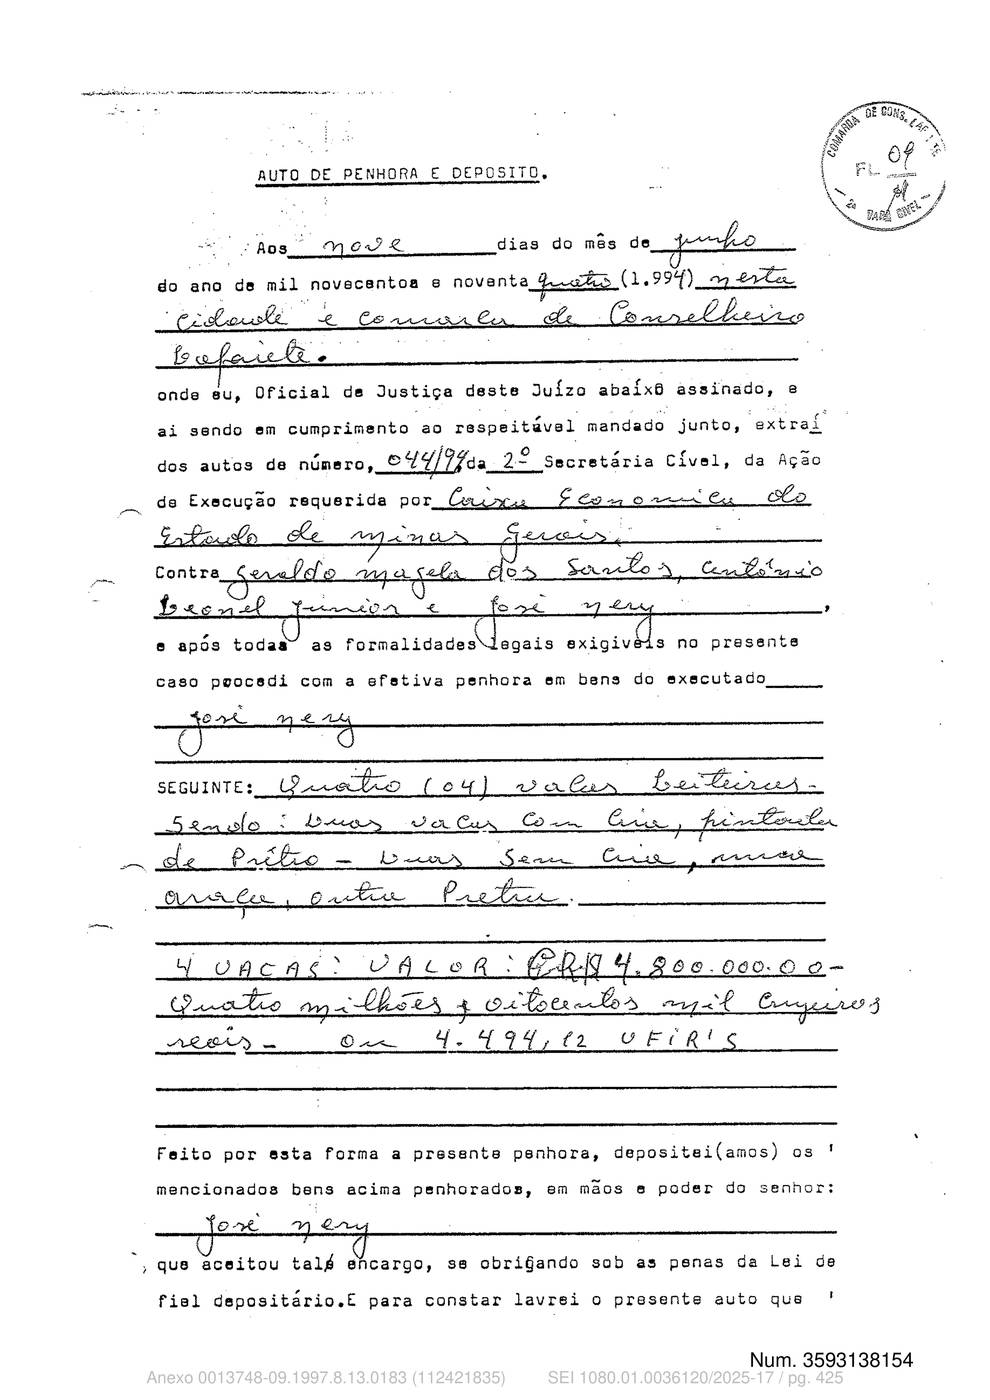 COMARDA DE CONS. LAFAIETE
FL 09
2ª VARA CIVEL
AUTO DE PENHORA E DEPOSITO.
Aos nove dias do mês de junho
do ano de mil novecentos e noventa quatro (1.994) nesta
Cidade e comarca de Conselheiro
Lafaiete.
onde eu, Oficial de Justiça deste Juízo abaíxo assinado, e
ai sendo em cumprimento ao respeitável mandado junto, extraí
dos autos de número, 044/94 da 2º Secretária Cível, da Ação
de Execução requerida por Caixa Economica do
Estado de Minas Gerais.
Contra Geraldo Magela dos Santos, Antônio
Leonel Junior e José Nery,
e após todas as formalidades legais exigiveis no presente
caso procedi com a efetiva penhora em bens do executado
José Nery
SEGUINTE: Quatro (04) vacas Leiteiras-
Sendo: Duas vacas com Cria, pintada
de Prêto - Duas Sem Cria, uma
araça, outra Preta.
4 VACAS: VALOR: CR$ 4.800.000.00-
Quatro milhões e oitocentos mil Cruzeiros
reais - ou 4.494,12 UFIR'S
Feito por esta forma a presente penhora, depositei(amos) os '
mencionados bens acima penhorados, em mãos e poder do senhor:
José Nery
que aceitou tal encargo, se obrigando sob as penas da Lei de
fiel depositário.E para constar lavrei o presente auto que '
Num. 3593138154
Anexo 0013748-09.1997.8.13.0183 (112421835) SEI 1080.01.0036120/2025-17 / pg. 425